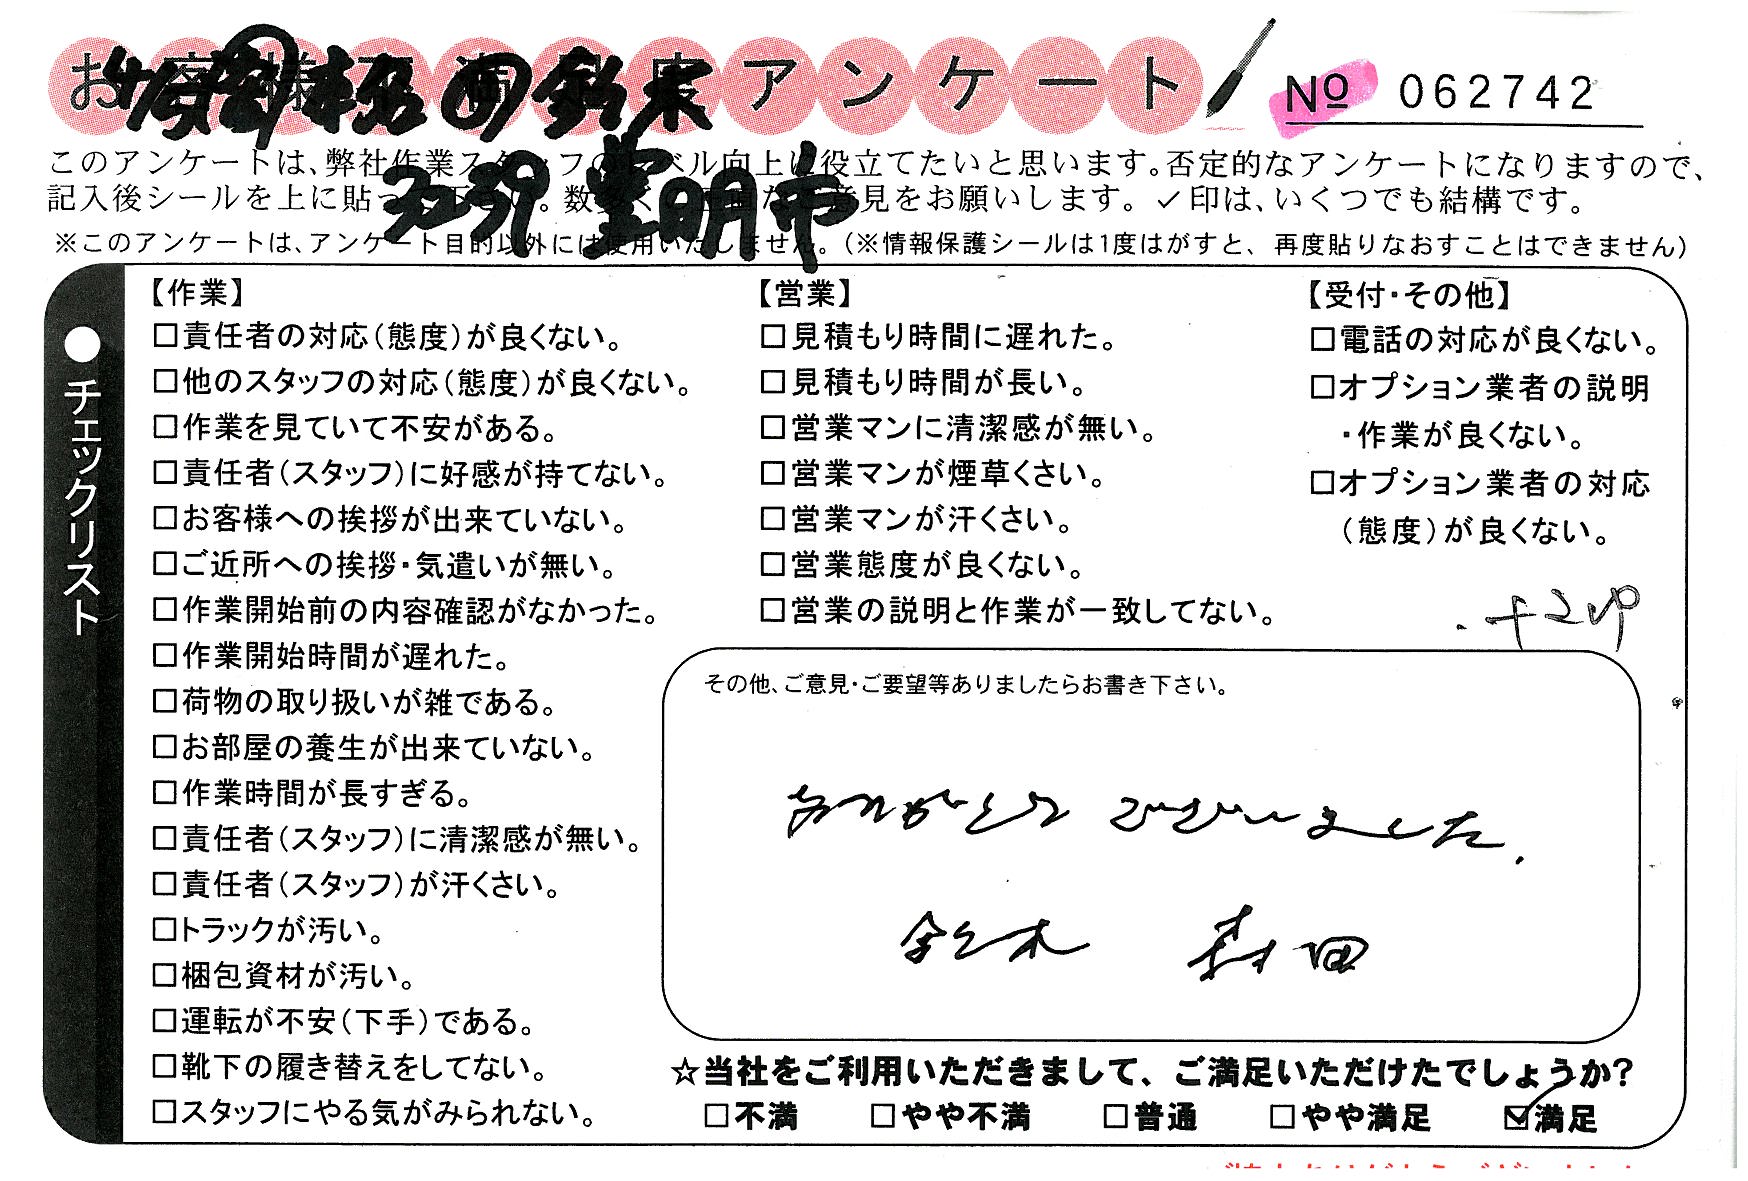 お客様不満足度アンケート
No 062742
このアンケートは、弊社作業スタッフのレベル向上に役立てたいと思います。否定的なアンケートになりますので、
記入後シールを上に貼って下さい。数多くの正直なご意見をお願いします。✓印は、いくつでも結構です。
※このアンケートは、アンケート目的以外には使用いたしません。（※情報保護シールは1度はがすと、再度貼りなおすことはできません）
豊明市
●チェックリスト
【作業】
□責任者の対応（態度）が良くない。
□他のスタッフの対応（態度）が良くない。
□作業を見ていて不安がある。
□責任者（スタッフ）に好感が持てない。
□お客様への挨拶が出来ていない。
□ご近所への挨拶・気遣いが無い。
□作業開始前の内容確認がなかった。
□作業開始時間が遅れた。
□荷物の取り扱いが雑である。
□お部屋の養生が出来ていない。
□作業時間が長すぎる。
□責任者（スタッフ）に清潔感が無い。
□責任者（スタッフ）が汗くさい。
□トラックが汚い。
□梱包資材が汚い。
□運転が不安（下手）である。
□靴下の履き替えをしてない。
□スタッフにやる気がみられない。
【営業】
□見積もり時間に遅れた。
□見積もり時間が長い。
□営業マンに清潔感が無い。
□営業マンが煙草くさい。
□営業マンが汗くさい。
□営業態度が良くない。
□営業の説明と作業が一致してない。
【受付・その他】
□電話の対応が良くない。
□オプション業者の説明
・作業が良くない。
□オプション業者の対応
（態度）が良くない。
その他、ご意見・ご要望等ありましたらお書き下さい。
ありがとうございました.
鈴木 村田
☆当社をご利用いただきまして、ご満足いただけたでしょうか？
□不満 □やや不満 □普通 □やや満足 ☑満足